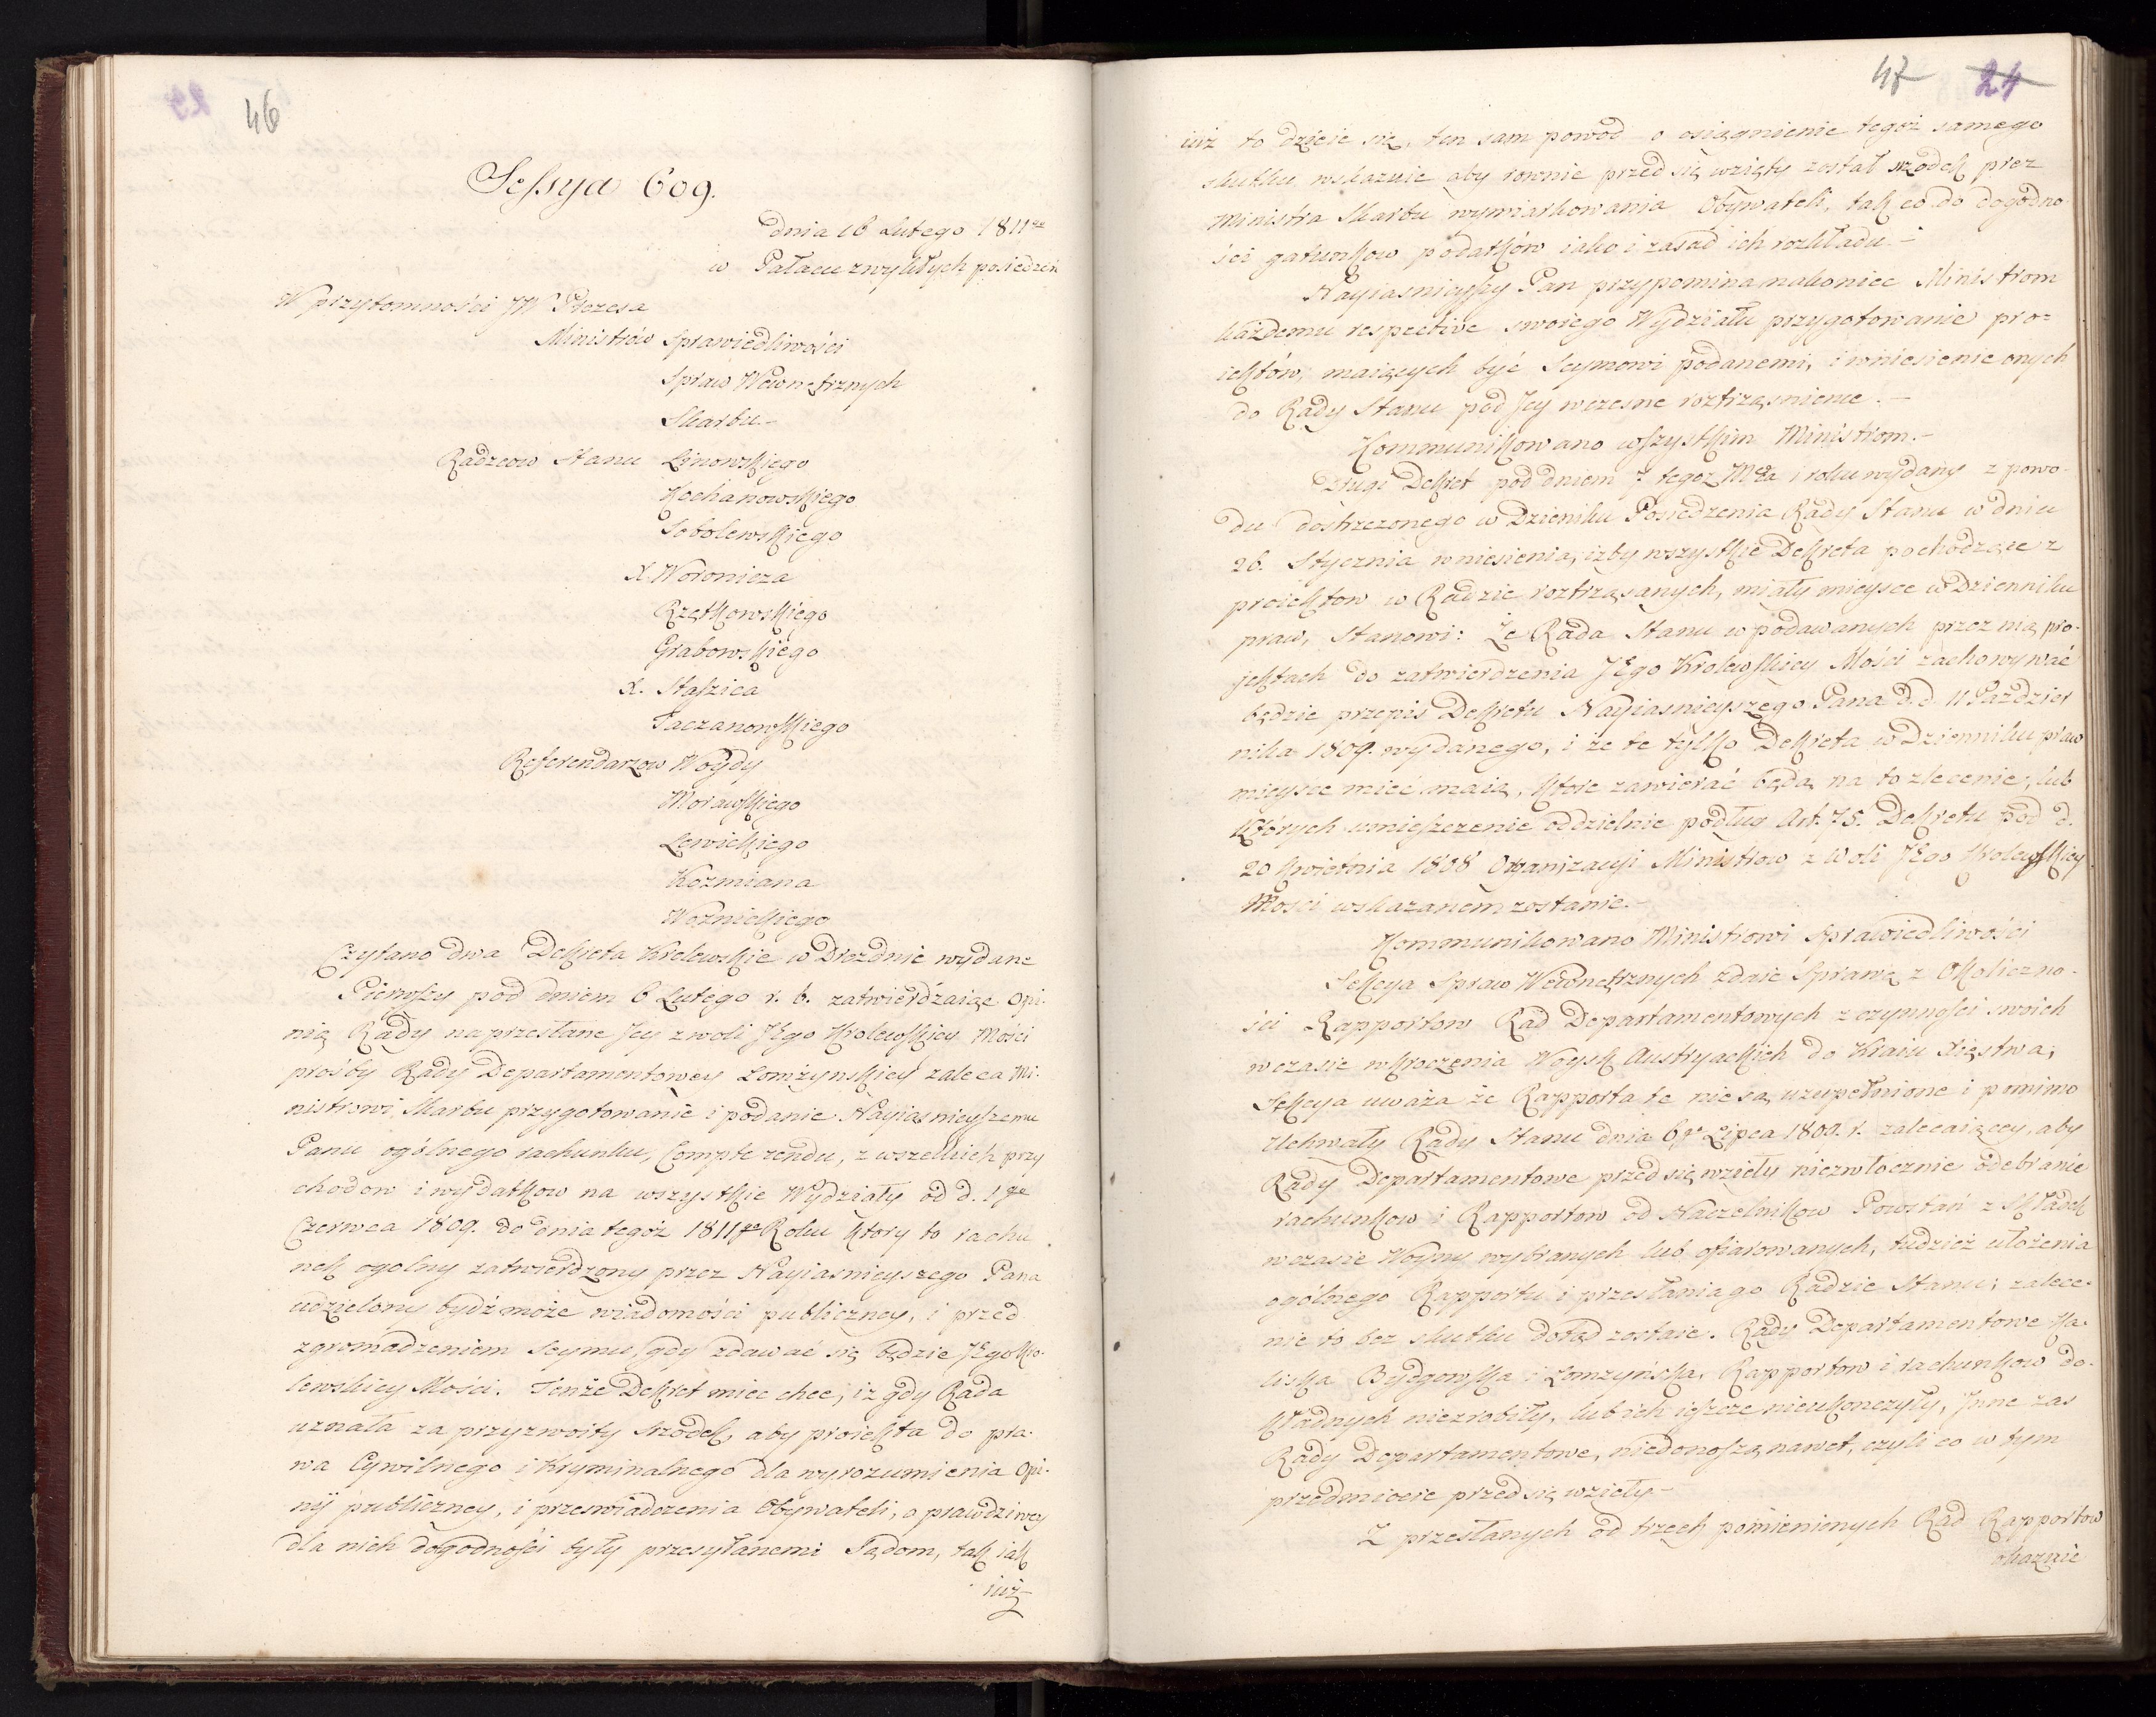 46
Sessya 609.
dnia 16 Lutego 1811go
w Pałacu zwykłych posiedzeń
W przytomności JW Prezesa
Ministrów Sprawiedliwości
Spraw Wewnętrznych
Skarbu.-
Radzców Stanu Linowskiego
Kochanowskiego
Sobolewskiego
X. Woronicza
Rzętkowskiego
Grabowskiego
X. Staszica
Taczanowskiego
Referendarzow Woydy
Morawskiego
Lewickiego
Kozmiana
Woznickiego
Czytano dwa Dekreta Krolewskie w Drezdnie wydane
Pierwszy pod dniem 6 Lutego r. b. zatwierdzaiąc Opi-
nią Rady na przesłane Jey z woli JEgo Krolewskiey Mości
prośby Rady Departamentowey Łomżynskiey zaleca Mi-
nistrowi Skarbu przygotowanie i podanie Nayiasnieyszemu
Panu ogólnego rachunku, Compte rendu, z wszelkich przy
chodow i wydatkow na wszystkie Wydziały od d. 1go
Czerwca 1809. do dnia tegoż 1811go Roku ktory to rachu
nek ogolny zatwierdzony przez Nayiasnieyszego Pana
udzielony bydź może wiadomości publiczney, i przed
zgromadzeniem Seymu, gdy zdawać się będzie JEgo Kro-
lewskiey Mości. Tenże Dekret miec chce, iz gdy Rada
uznała za przyzwoity srzodek, aby proiekta do pra-
wa Cywilnego i Kryminalnego dla wyrozumienia Opi-
nij publiczney, i przeswiadczenia Obywateli, o prawdziwey
dla nich dogodności były przesyłanemi Sądom, tak iak
iuż
47 24
iuż to dzieie się, ten sam powod o osiągnienie tegoż samego
skutku wskazuie aby rownie przed się wzięty został srzodek przez
Ministra Skarbu wymiarkowania Obywateli, tak co do dogodno
ści gatunkow podatków iako i zasad ich rozkładu.-
Nayiasnieyszy Pan przypomina nakoniec Ministrom
każdemu respective swoiego Wydziału przygotowanie pro=
iektów, maiących być Seymowi podanemi, i wniesienie onych
do Rady Stanu pod Jey wczesne roztrząsnienie.-
Kommunikowano wszystkim Ministrom.-
Drugi Dekret pod dniem 7 tegoż Mca i roku wydany z powo-
du dostrzezonego w Dzieniku Posiedzenia Rady Stanu w dniu
26. Stycznia wniesienia, izby wszystkie Dekreta pochodzące z
proiektow w Radzie roztrząsanych, miały mieysce w Dzienniku
praw, Stanowi: Że Rada Stanu w podawanych przez nią pro-
jektach do zatwierdzenia JEgo Krolewskiey Mości zachowywać
będzie przepis Dekretu Nayiasnieyszego Pana d.d. 11 Paździer
nika 1809. wydanego, i że te tylko Dekreta w Dzienniku praw
mieysce mieć maią, ktore zawierać będą na to zlecenie, lub
których umieszczenie oddzielnie podług Art. 75. Dekretu pod d.
20 Kwietnia 1808 Organizacyi Ministrow z Woli JEgo Krolewskiey
Mości wskazanem zostanie.-
Kommunikowano Ministrowi Sprawiedliwości
Sekcya Spraw Wewnętrznych zdaie Sprawę z Okoliczno-
ści Rapportow Rad Departamentowych z czynności swoich
w czasie wkroczenia Woysk Austryackich do Kraiu Xięstwa;
Sekcya uważa że Rapporta te nie są uzupełnione i pomimo
Uchwały Rady Stanu dnia 6go Lipca 1809. r. zalecaiącey, aby
Rady Departamentowe przed się wzieły niezwłocznie odebranie
rachunkow i Rapportow od Naczelnikow Powstań z Składek
w czasie Woyny wybranych lub ofiarowanych, tudzież ułożenia
ogólnego Rapportu i przesłania go Radzie Stanu; zalece-
nie to bez skutku dotąd zostaie. Rady Departamentowe Ka-
liska Bydgowska i Łomzyńska, Rapportow i rachunkow do-
kładnych niezrobiły, lub ich ieszcze nieukonczyły, Inne zas
Rady Departamentowe, niedonoszą nawet, czyli co w tym
przedmiocie przed się wzieły.-
Z przesłanych od trzech pomienionych Rad Rapportow
okazuie